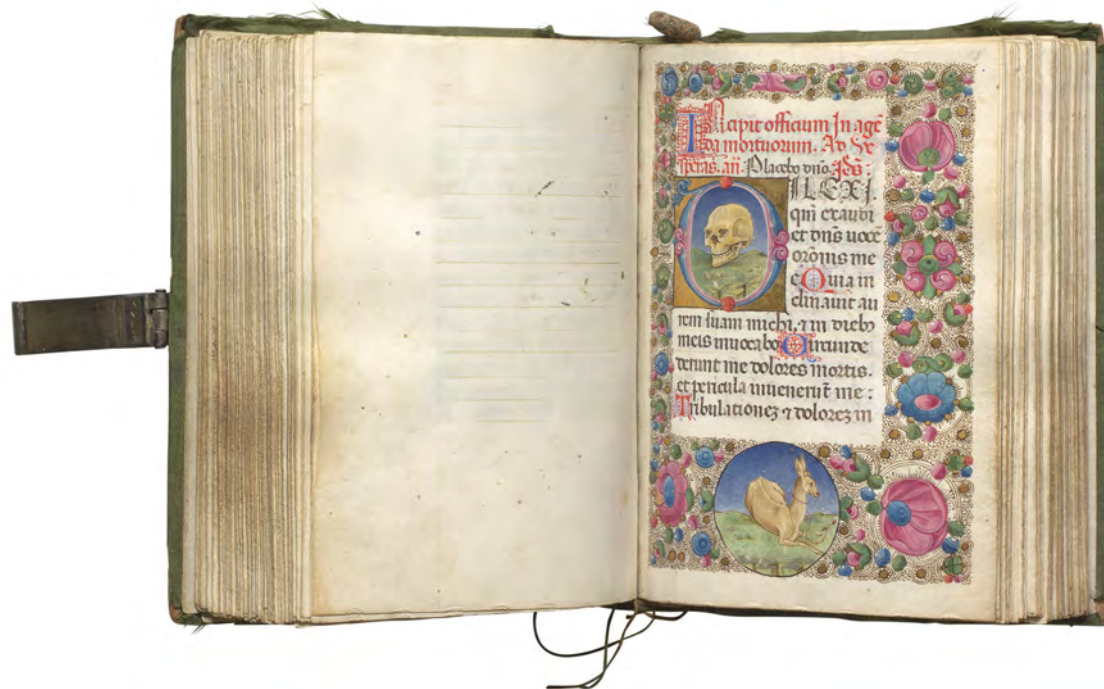 Incipit officium In agē
da mortuorum. Ad Ve
speras. an̄. Placebo dn̄o. Ps̄:
DILEXI.
qm̄ exaudi
et dn̄s uocē
orōnis me
e Quia in
clinauit au
rem suam michi. ⁊ in dieb₉
meis inuocabo Circunde
derunt me dolores mortis.
et pericula inuenerūt me:
Tribulationez ⁊ dolorez in